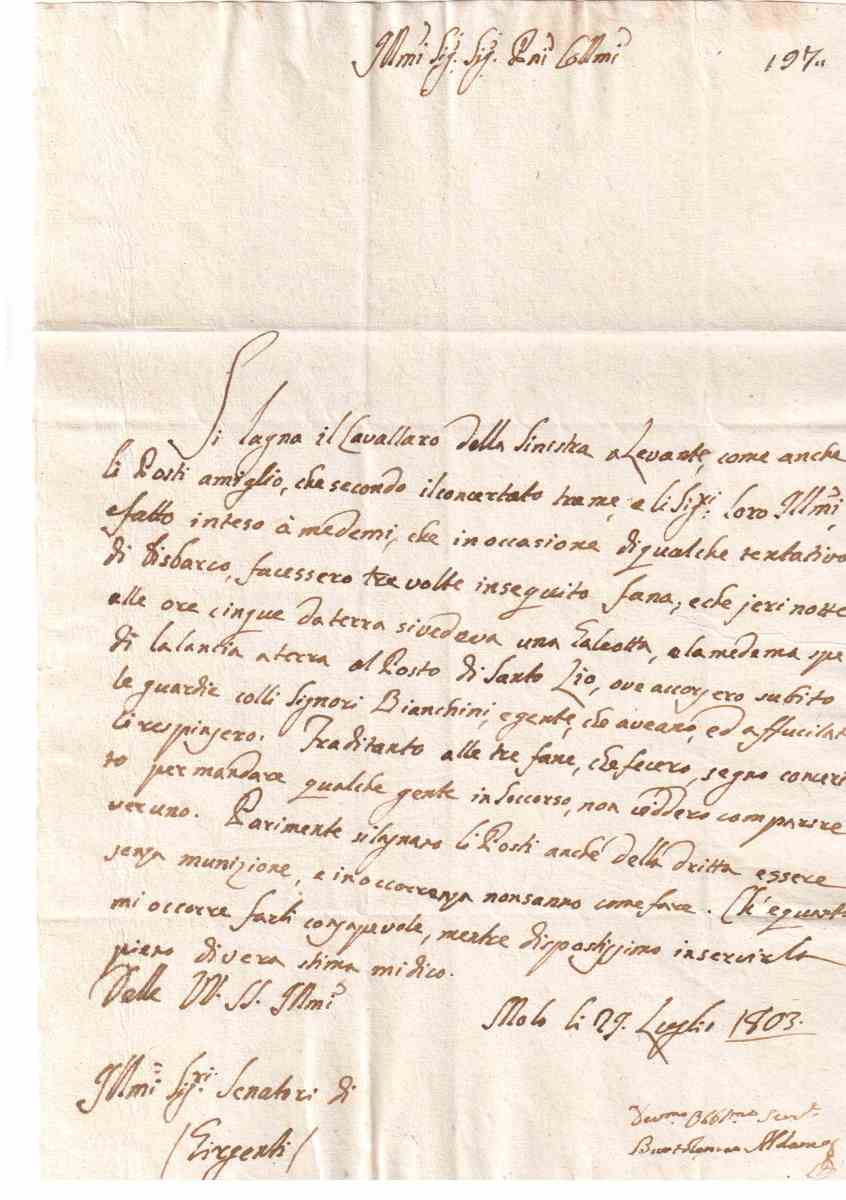 Illmi Sigi. Sigi. Pni Collmi
197
Si lagna il Cavallaro della Sinistra a Levante, come anche
li Posti amiglio, che secondo il concertato tra me, e li Sigri: loro Illmi,
e fatto inteso à medemi, che in occasione di qualche tentativo
di disbarco, facessero tre volte inseguito fana, e che jeri notte
alle ore cinque da terra si vedeva una Galeotta, e la medema spe
di la lancia a terra al Posto di Santo Lio, ove accorsero subito
le guardie colli Signori Bianchini, e gente, che aveano, ed affucilat
li respinsero. Fraditanto alle tre fane, che fecero, segno concer
to per mandare qualche gente in soccorso, non viddero comparire
veruno. Parimente si lagnano li Posti anche della dritta essere
senza munizione, e in occorrenza non sanno come fare. Ch'è quanto
mi occorre farli consapevole, mentre dispostissimo in servirla
pieno di vera stima mi dico.
Delle VV. SS. Illmi
Molo li 29. Luglio 1803.
Illmi Sigri Senatori di
Girgenti
Devmo Obbmo Servr
Bartolomeo